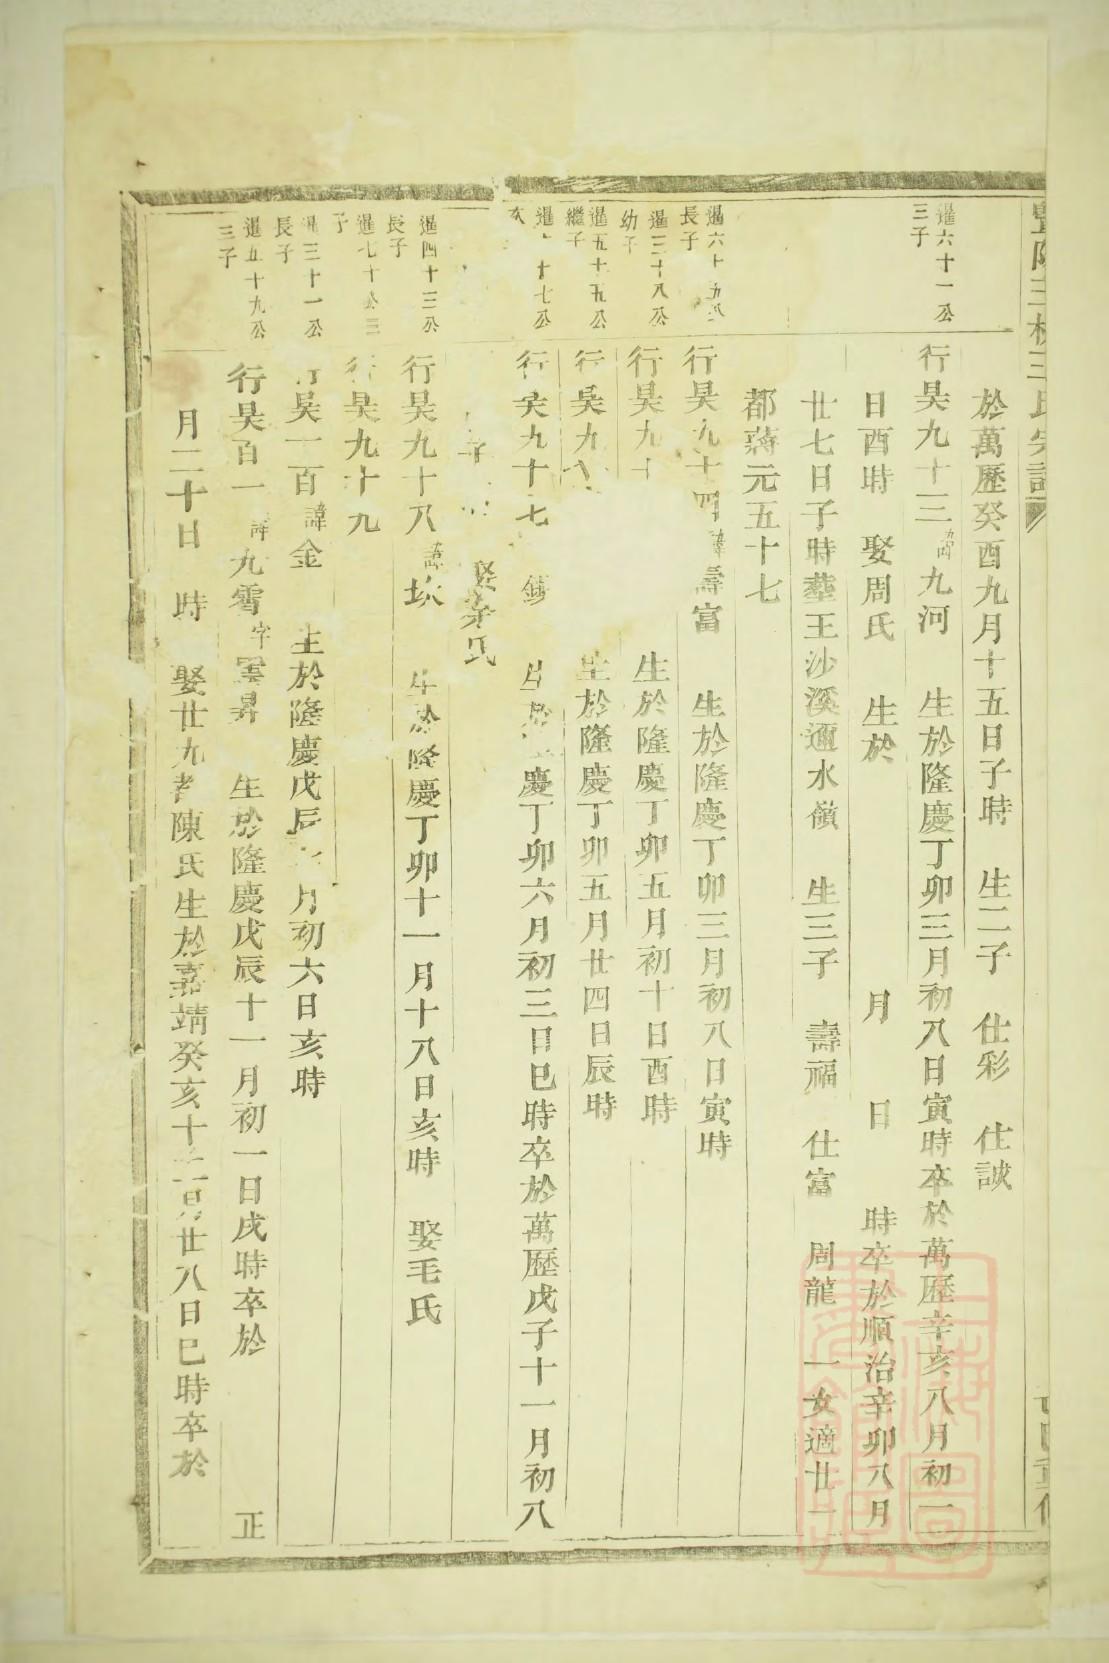 於萬歷癸酉九月十五日子時　生二子　仕彩　仕誠
暹六十一公
三子
行昊九十三諱九河　生於隆慶丁卯三月初八日寅時卒於萬歷辛亥八月初一
日酉時　娶周氏　生於　月　日　時卒於順治辛卯八月
廿七日子時塟王沙溪邇水嶺　生三子　壽福　仕富　周龍　一女適廿一
都蔣元五十七
暹六十五公
長子
行昊九十四諱壽富　生於隆慶丁卯三月初八日寅時
暹三十八公
幼子
行昊九十　生於隆慶丁卯五月初十日酉時
暹五十五公
繼子
行昊九　生於隆慶丁卯五月廿四日辰時
暹　十七公
行昊九十七　生於隆慶丁卯六月初三日巳時卒於萬歷戊子十一月初八
娶余氏
暹四十三公
長子
行昊九十八諱坎　生於隆慶丁卯十一月十八日亥時　娶毛氏
暹七十公三
子
行昊九十九
暹三十一公
長子
行昊一百諱金　生於隆慶戊辰　月初六日亥時
暹五十九公
三子
行昊百一諱九霄字雲昇　生於隆慶戊辰十一月初一日戌時卒於　正
月二十日　時　娶廿九都陳氏生於嘉靖癸亥十二月廿八日巳時卒於
上海圖書館藏